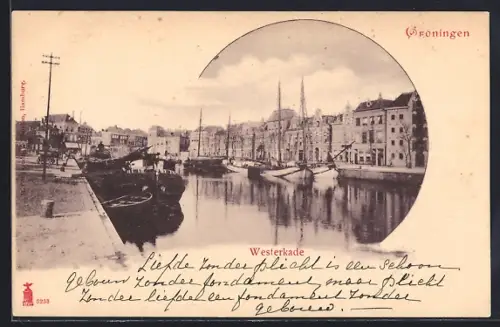 Groningen
Hamburg.
Westerkade
Liefde zonder plicht is een schoon
gebouw zonder fondament, maar plicht
zonder liefde een fondament zonder
gebouw.
3258